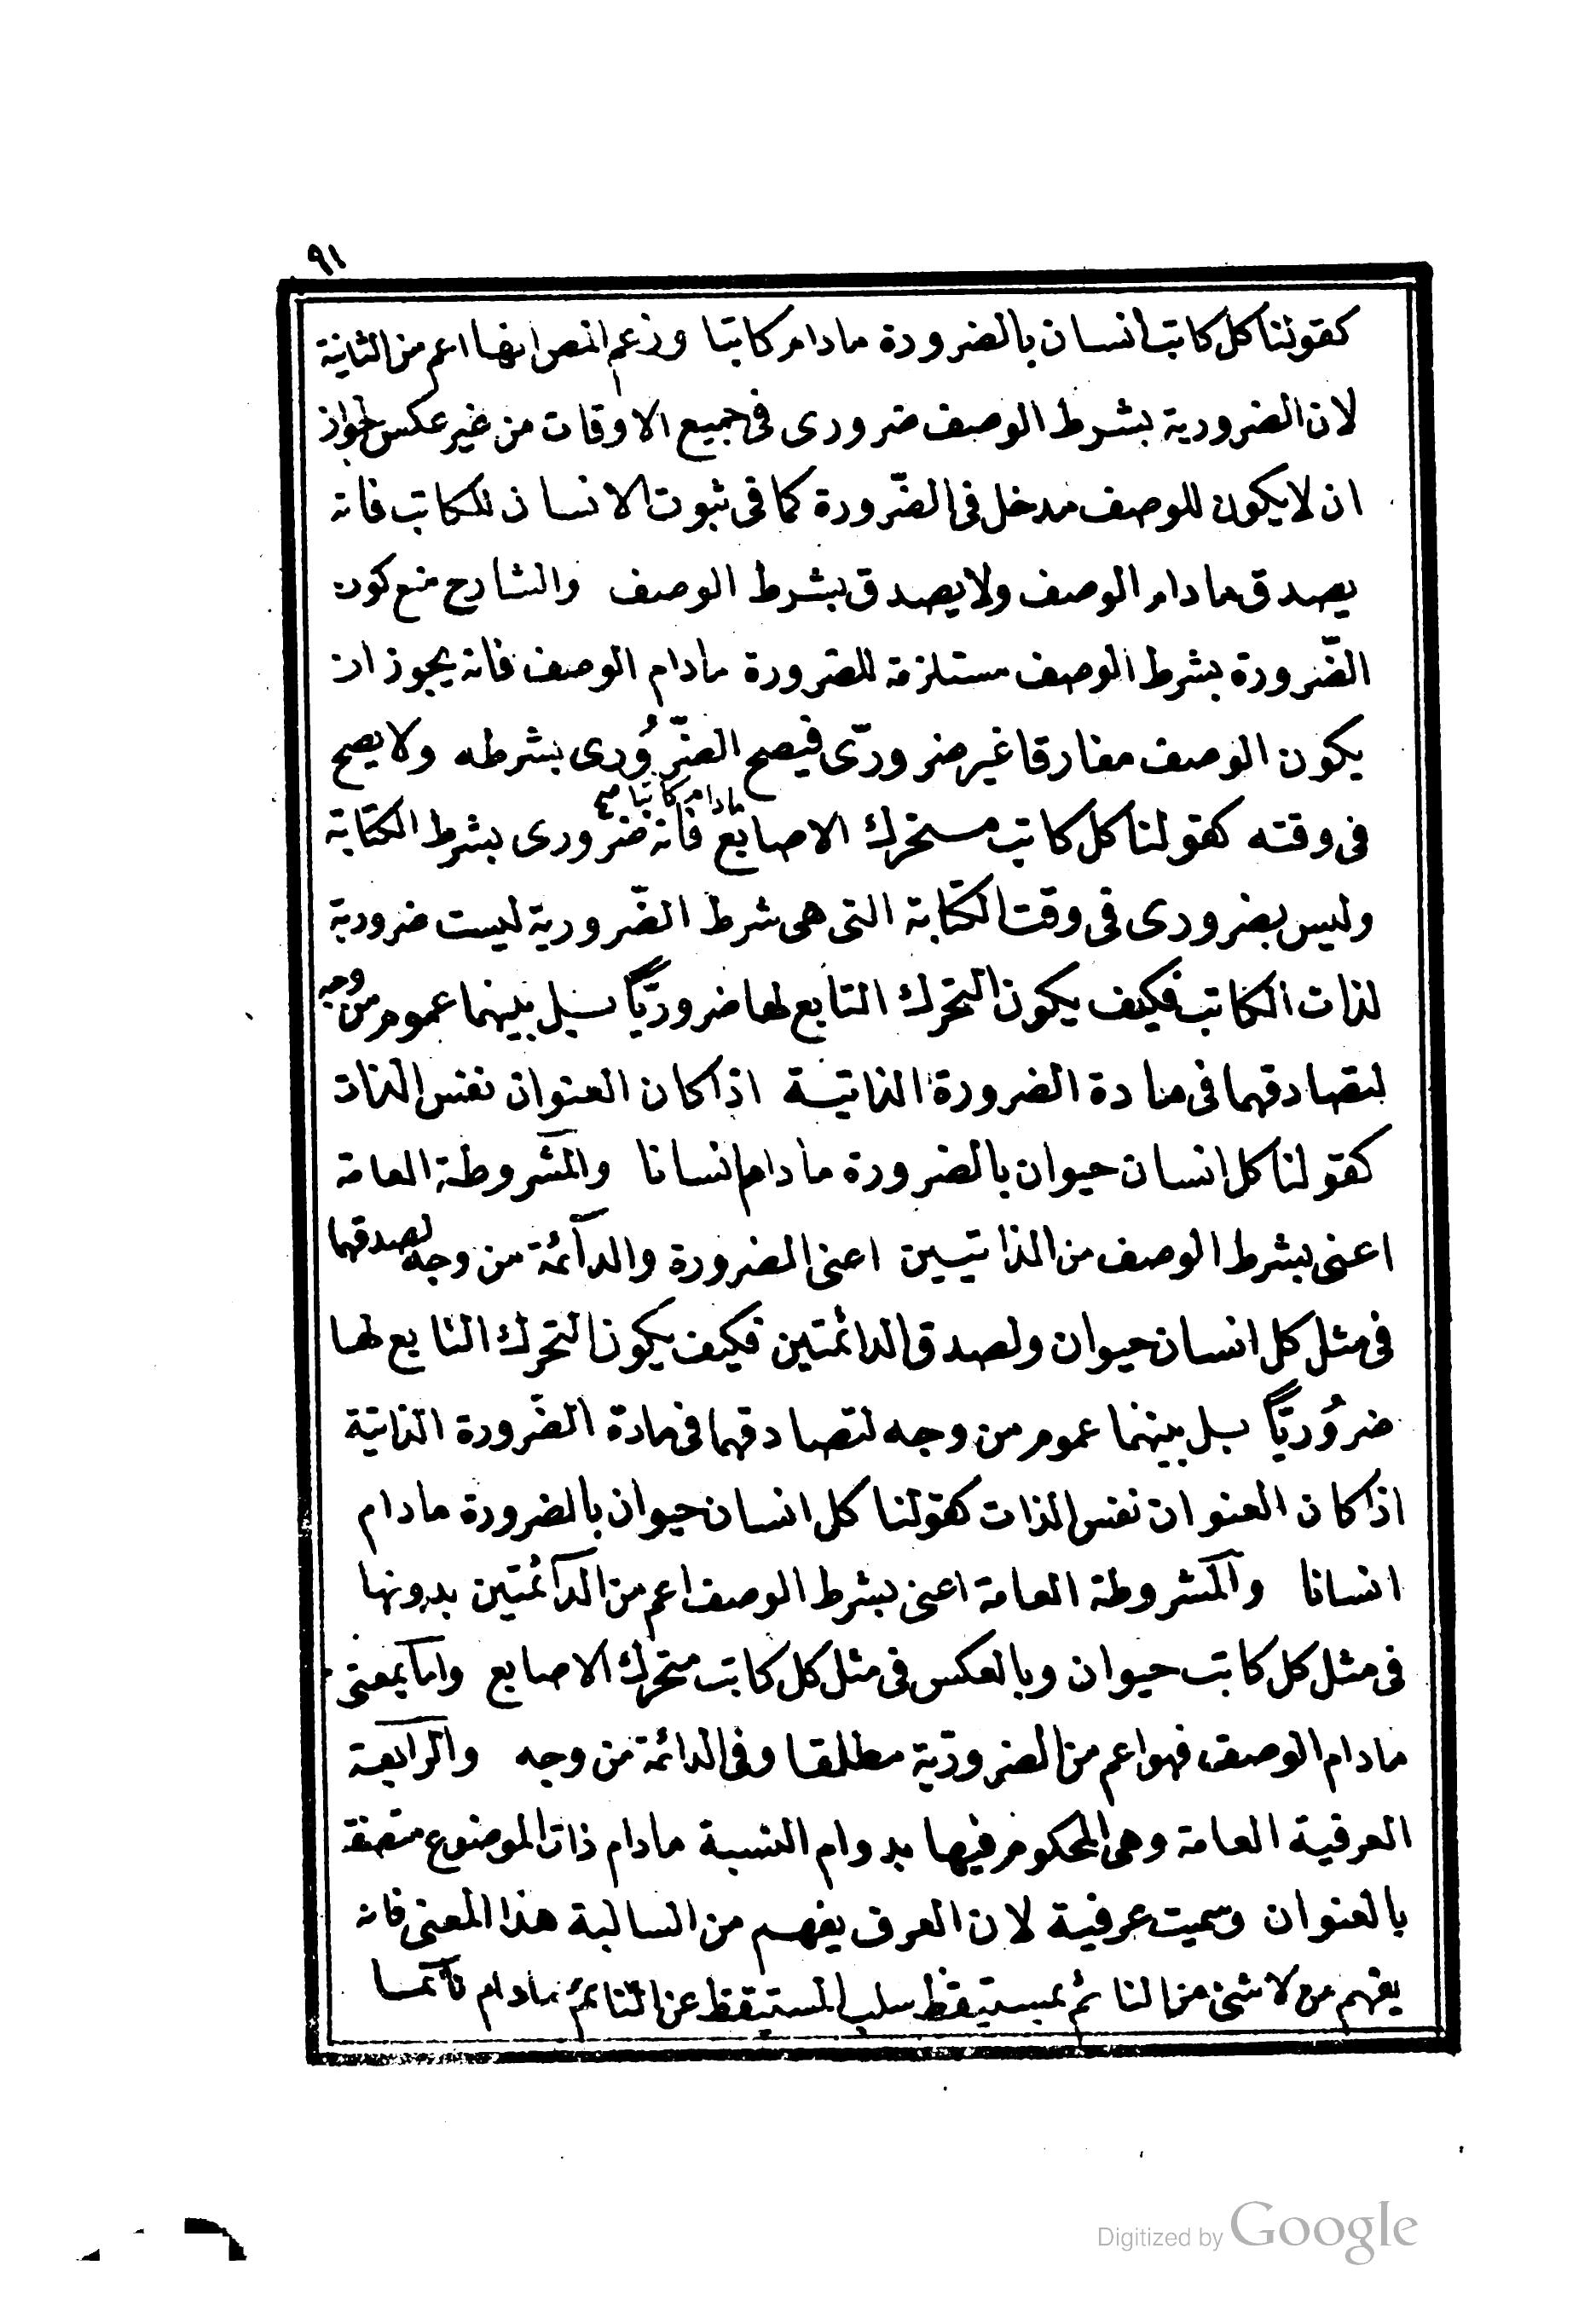 ٩١
كقولنا كل كاتب انسان بالضرورة مادام كاتبا وزعم المص انها اعم من الثانية
لان الضرورية بشرط الوصف ضرورى فى جميع الاوقات من غير عكس لجواز
ان لا يكون للوصف مدخل فى الضّرورة كما فى ثبوت الانسان للكاتب فانه
يصدق مادام الوصف ولا يصدق بشرط الوصف والشارح منع كون
الضّرورة بشرط الوصف مستلزمة للضرورة مادام الوصف فانه يجوز ان
يكون الوصف مفارقا غير ضرورىّ فيصح الضّرُورى بشرطه ولا يصح
مادام كاتبا صح
فى وقته كقولنا كل كاتب متحرك الاصابع فانه ضرورى بشرط الكتابة
وليس بضرورى فى وقت الكتابة التى هى شرط الضّرورية ليست ضرورية
لذات الكاتب فكيف يكون التحرك التابع لها ضروريّاً بل بينهما عموم من وجه
لتصادقهما فى مادة الضرورة الذاتية اذا كان العنوان نفس الذات
كقولنا كل انسان حيوان بالضرورة مادام انسانا والمشروطة العامة
اعنى بشرط الوصف من الذاتيين اعنى الضرورة والدآئمة من وجه لصدقهما
فى مثل كل انسان حيوان ولصدق الدائمتين فكيف يكون التحرك التابع لها
ضرُوريّاً بل بينهما عموم من وجه لتصادقهما فى مادة الضّرورة الذاتية
اذا كان العنوان نفس الذات كقولنا كل انسان حيوان بالضرورة مادام
انسانا والمشروطة العامة اعنى بشرط الوصف اعم من الدآئمتين بدونها
فى مثل كل كاتب حيوان وبالعكس فى مثل كل كاتب متحرك الاصابع واما بمعنى
مادام الوصف فهو اعم من الضروريّة مطلقا وفى الدائمة من وجه والرابعة
العرفية العامة وهى المحكوم فيها بدوام النسبة مادام ذات الموضوع متصفة
بالعنوان وسميت عرفية لان العرف يفهم من السالبة هذا المعنى فانه
يفهم من لا شئ من النائم بمستيقظ سلب المستيقظ عن النائم مادام نآئما
Digitized by Google